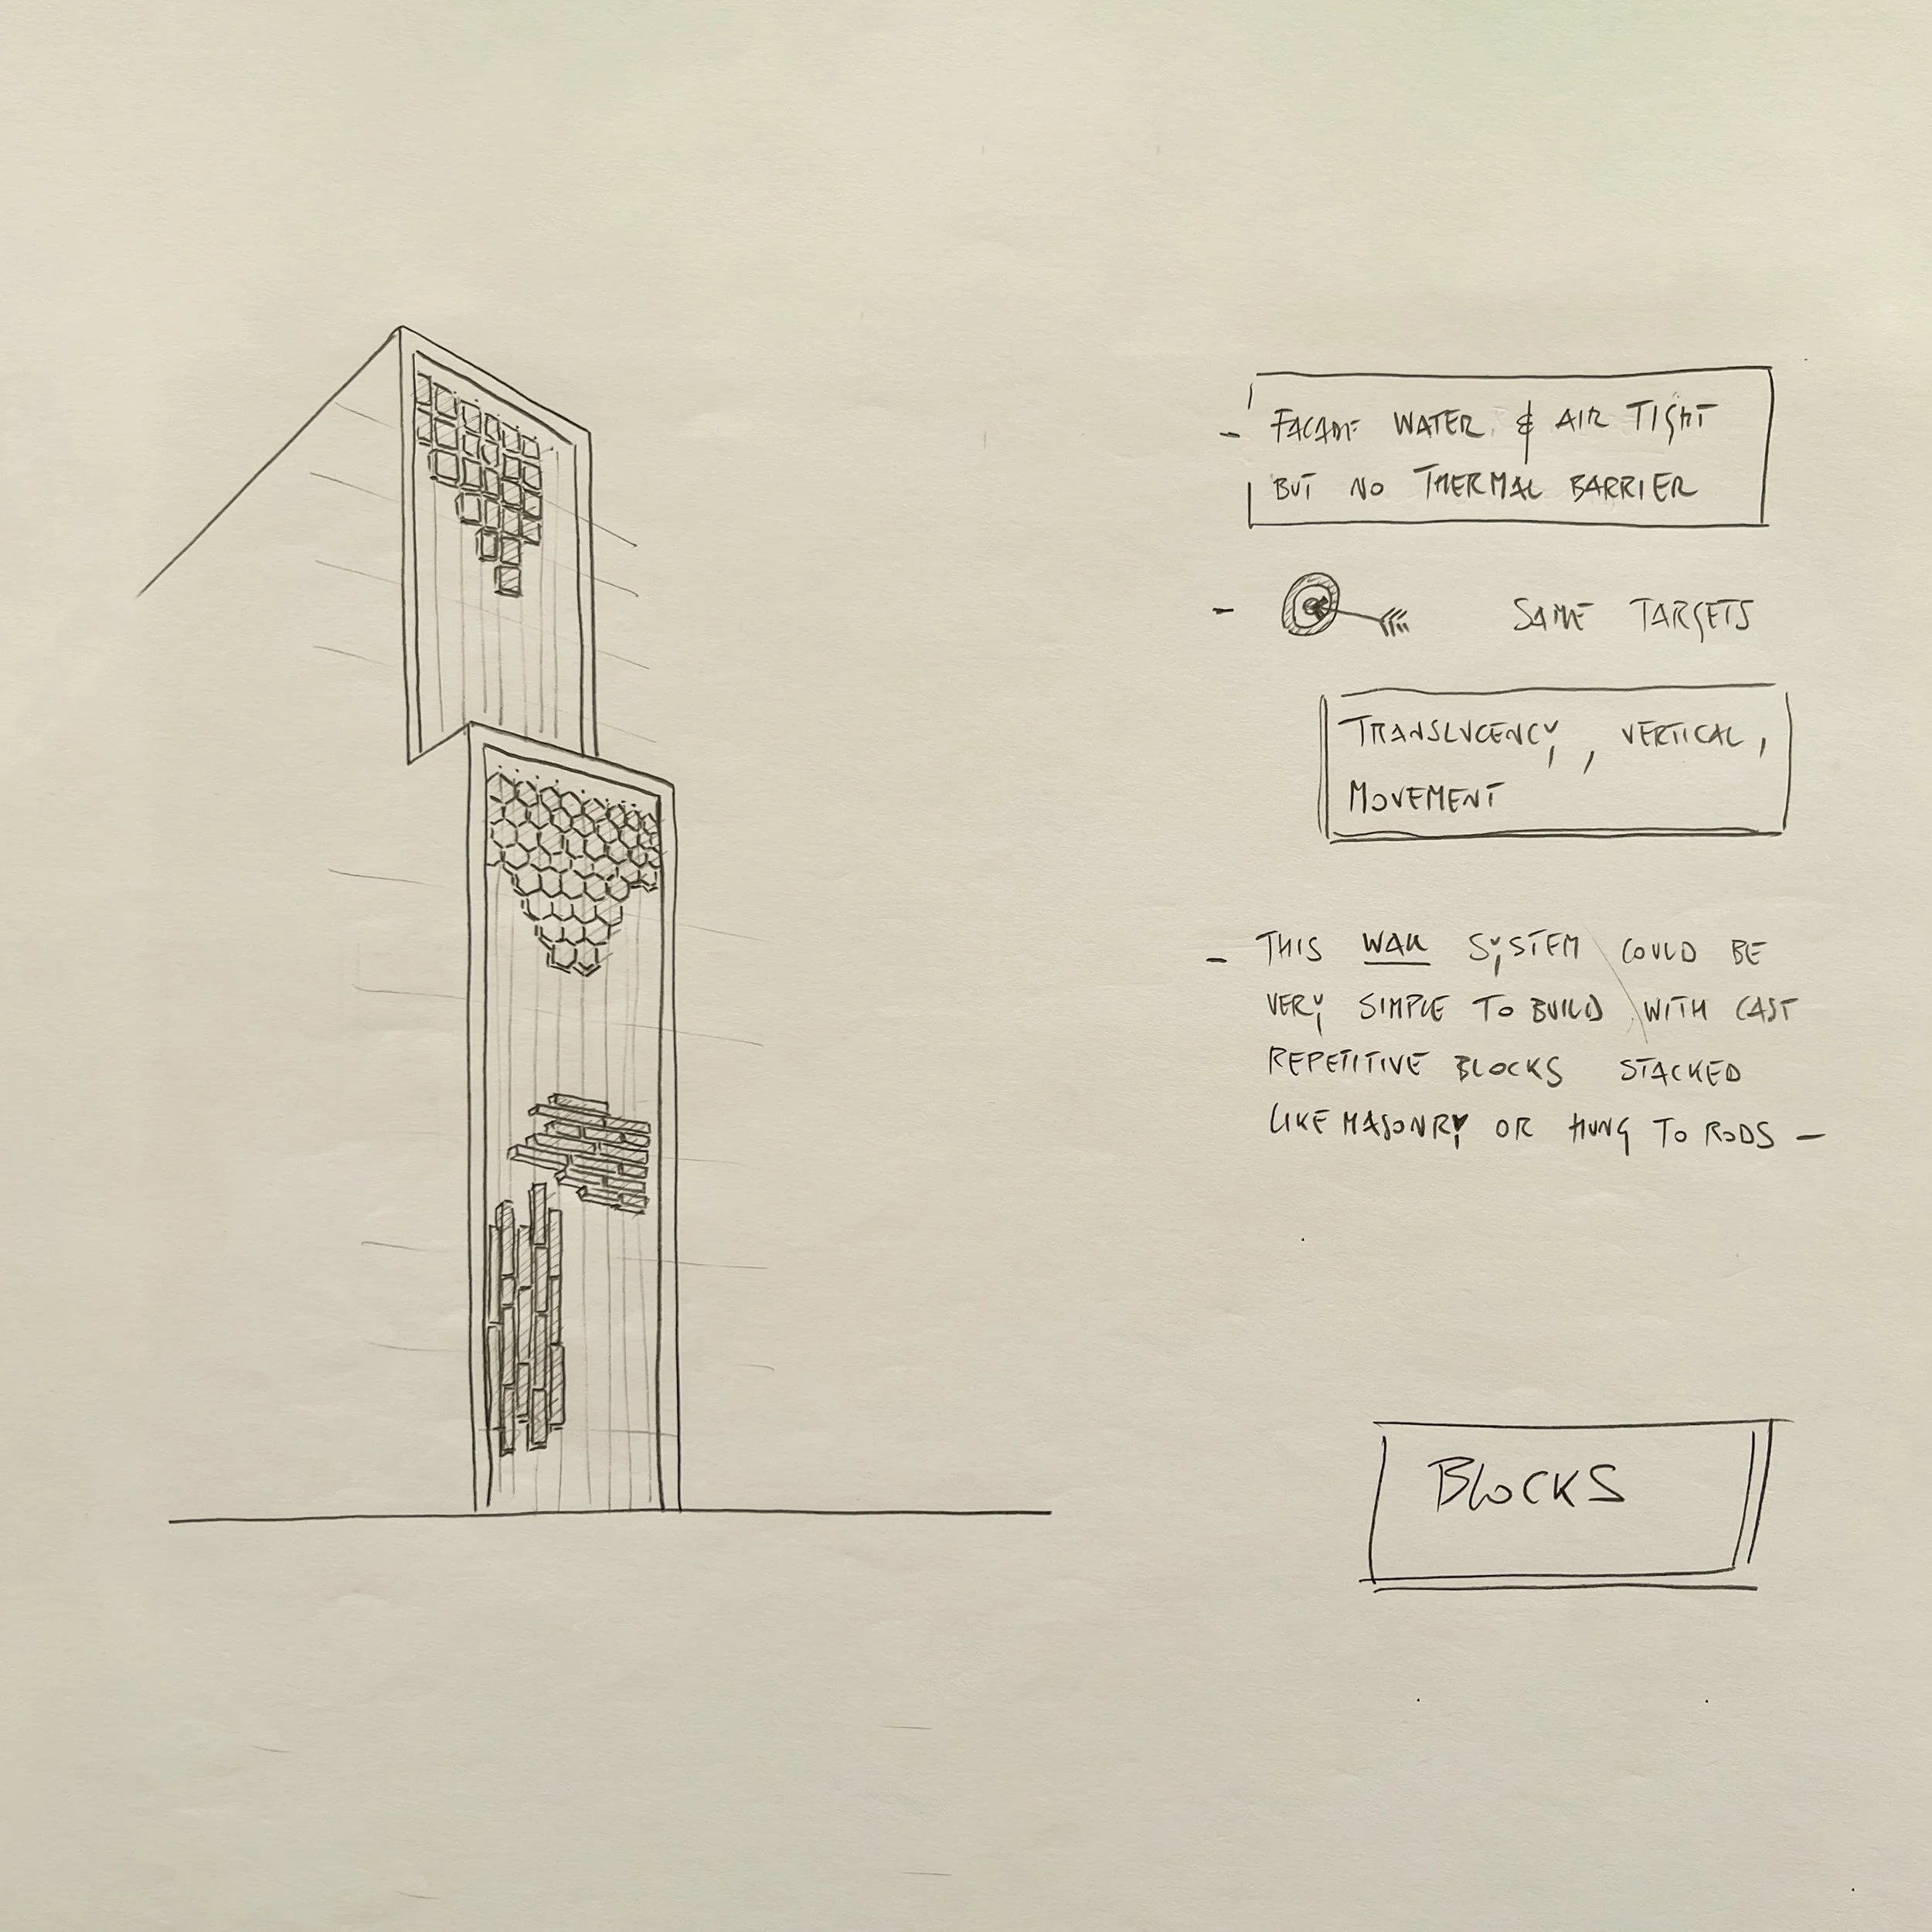 - FACADE WATER & AIR TIGHT
BUT NO THERMAL BARRIER
- SAME TARGETS
TRANSLUCENCY, VERTICAL,
MOVEMENT
- THIS WALL SYSTEM COULD BE
VERY SIMPLE TO BUILD WITH CAST
REPETITIVE BLOCKS STACKED
LIKE MASONRY OR HUNG TO RODS -
BLOCKS